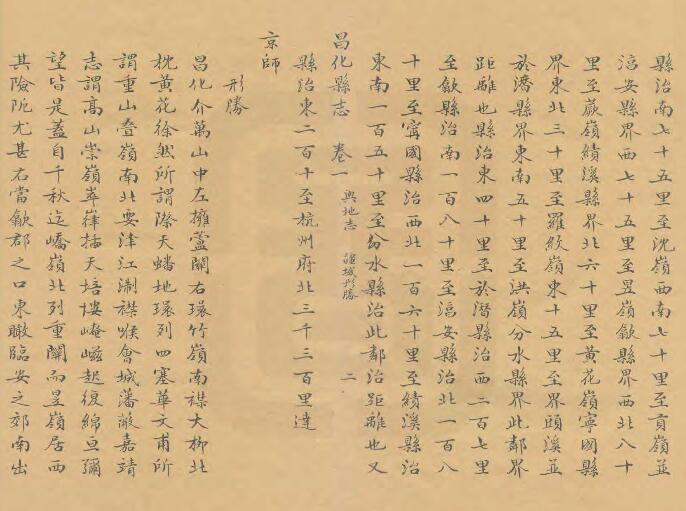 縣治南七十五里至沈嶺西南七十里至貢嶺並
淳安縣界西七十五里至昱嶺歙縣界西北八十
里至蕨嶺績溪縣界北六十里至黃花嶺寧國縣
界東北三十里至羅紋嶺東十五里至界頭溪並
於潛縣界東南五十里至洪嶺分水縣界此鄰界
距離也縣治東四十里至於潛縣治西二百七里
至歙縣治南一百八十里至淳安縣治北一百八
十里至寧國縣治西北一百六十里至績溪縣治
東南一百五十里至分水縣治此鄰治距離也又
昌化縣志 卷一 輿地志 疆域形勝 二
縣治東二百十至杭州府北三千三百里達
京師
形勝
昌化介萬山中左擁蘆關右環竹嶺南襟大柳北
枕黃花徐然所謂際天蟠地環列四塞華文甫所
謂重山疊嶺南北要津江淛襟喉會城藩蔽嘉靖
志謂高山崇嶺崒嵂插天培塿嶙嵫起復綿亘彌
望皆是蓋自千秋迄嶠嶺北列重關而昱嶺居西
其險阨尤甚右當歙郡之口東瞰臨安之郊南出